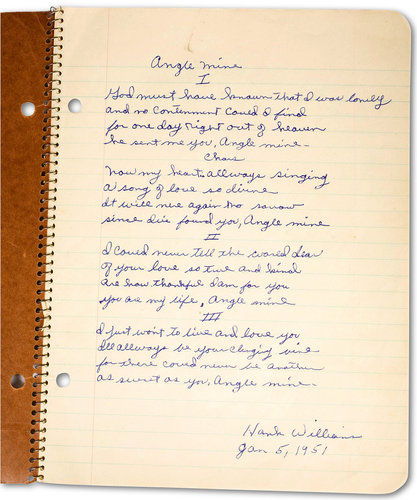 Angle mine
I
God must have known that I was lonely
and no contenment Could I find
for one day right out of heaven
he sent me you, Angle mine -
Chors
now my heart allways singing
a song of love so divine
It will never again no sorrow
since I've found you, Angle mine
II
I Could never tell the world dear
of your love so true and kind
are how thankful I am for you
you are my life, Angle mine
III
I just wont to live and love you
Ill allways be your clinging vine
for there could never be another
as sweet as you, Angle mine -
Hank Williams
Jan 5, 1951